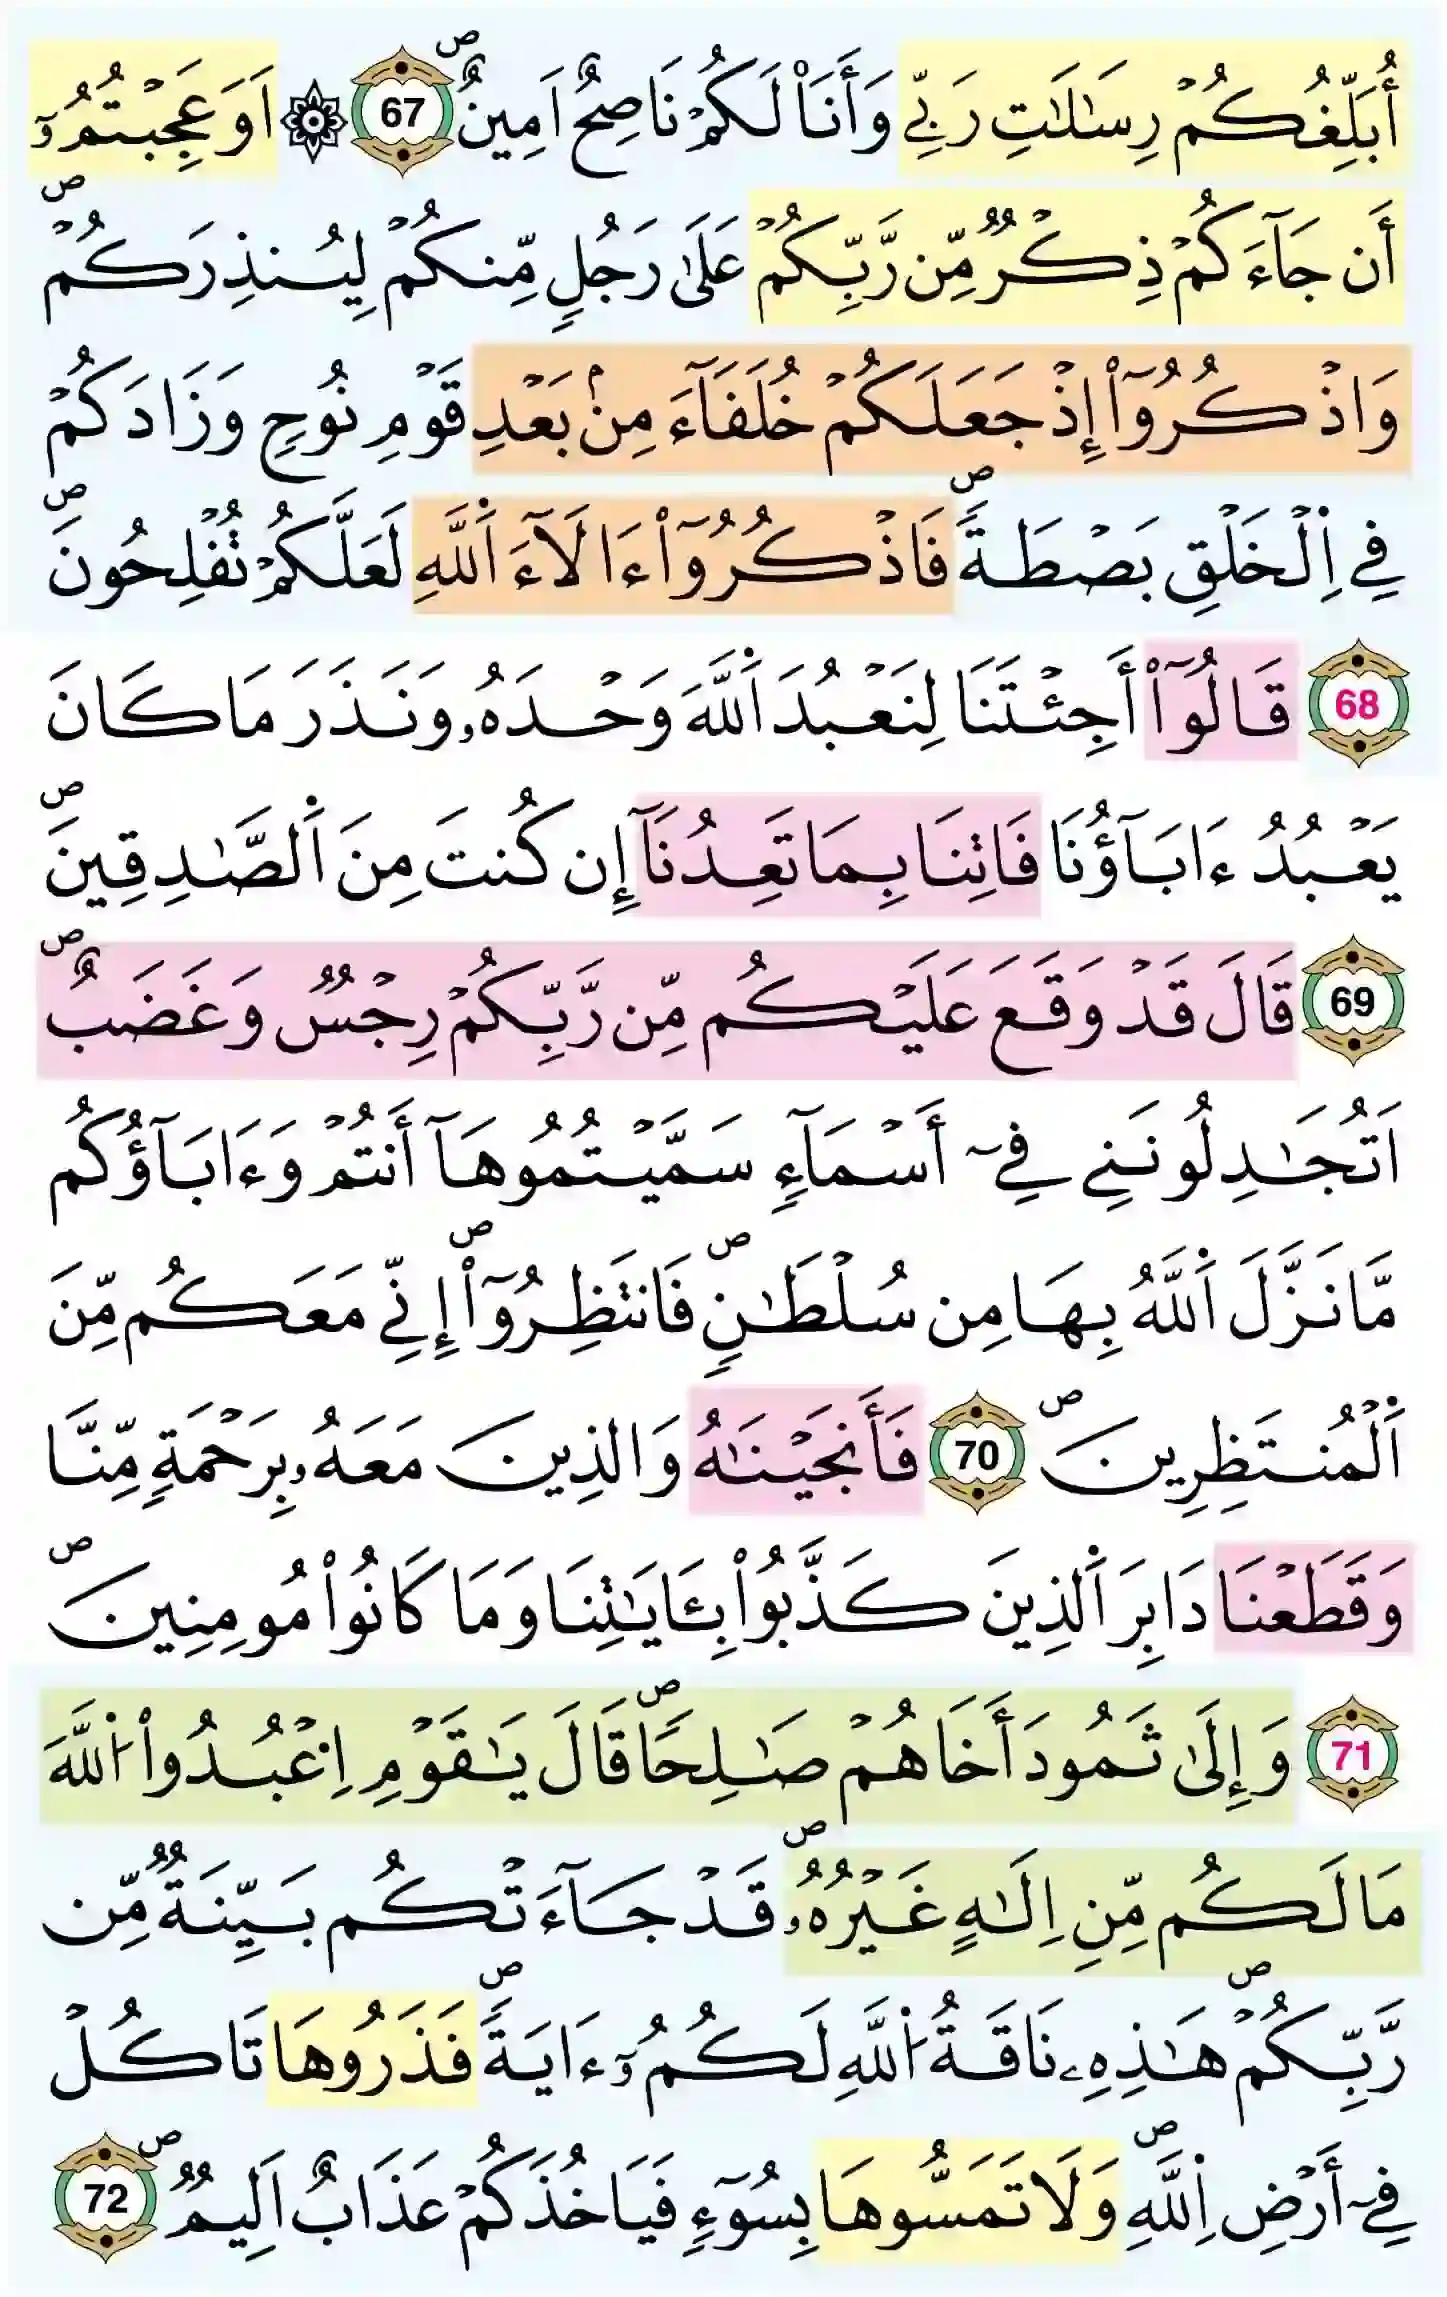 أُبَلِّغُكُمْ رِسَٰلَٰتِ رَبِّے وَأَنَا۠ لَكُمْ نَاصِحٌ اَمِينٌۖ 67 ۞ اَوَعَجِبْتُمُۥٓ
أَن جَآءَكُمْ ذِكْرٌ مِّن رَّبِّكُمْ عَلَىٰ رَجُلٍ مِّنكُمْ لِيُنذِرَكُمْۖ
وَاذْكُرُوٓا۟ إِذْ جَعَلَكُمْ خُلَفَآءَ مِنۢ بَعْدِ قَوْمِ نُوحٍ وَزَادَكُمْ
فِے اِ۬لْخَلْقِ بَصْطَةًۖ فَاذْكُرُوٓا۟ ءَالَآءَ اَ۬للَّهِ لَعَلَّكُمْ تُفْلِحُونَۖ
68 قَالُوٓا۟ أَجِئْتَنَا لِنَعْبُدَ اَ۬للَّهَ وَحْدَهُۥ وَنَذَرَ مَا كَانَ
يَعْبُدُ ءَابَآؤُنَا فَاتِنَا بِمَا تَعِدُنَآ إِن كُنتَ مِنَ اَ۬لصَّٰدِقِينَۖ
69 قَالَ قَدْ وَقَعَ عَلَيْكُم مِّن رَّبِّكُمْ رِجْسٌ وَغَضَبٌۖ
اَتُجَٰدِلُونَنِے فِےٓ أَسْمَآءٍ سَمَّيْتُمُوهَآ أَنتُمْ وَءَابَآؤُكُم
مَّا نَزَّلَ اَ۬للَّهُ بِهَا مِن سُلْطَٰنٍۖ فَانتَظِرُوٓا۟ۖ إِنِّے مَعَكُم مِّنَ
اَ۬لْمُنتَظِرِينَۖ 70 فَأَنجَيْنَٰهُ وَالذِينَ مَعَهُۥ بِرَحْمَةٍ مِّنَّا
وَقَطَعْنَا دَابِرَ اَ۬لذِينَ كَذَّبُوا۟ بِـَٔايَٰتِنَا وَمَا كَانُوا۟ مُومِنِينَۖ
71 وَإِلَىٰ ثَمُودَ أَخَاهُمْ صَٰلِحاًۖ قَالَ يَٰقَوْمِ اِ۟عْبُدُوا۟ اُ۬للَّهَ
مَا لَكُم مِّنِ اِلَٰهٍ غَيْرُهُۥۖ قَدْ جَآءَتْكُم بَيِّنَةٌ مِّن
رَّبِّكُمْۖ هَٰذِهِۦ نَاقَةُ اُ۬للَّهِ لَكُمُۥٓ ءَايَةًۖ فَذَرُوهَا تَاكُلْ
فِےٓ أَرْضِ اِ۬للَّهِۖ وَلَا تَمَسُّوهَا بِسُوٓءٍ فَيَاخُذَكُمْ عَذَابٌ اَلِيمٌۖ 72